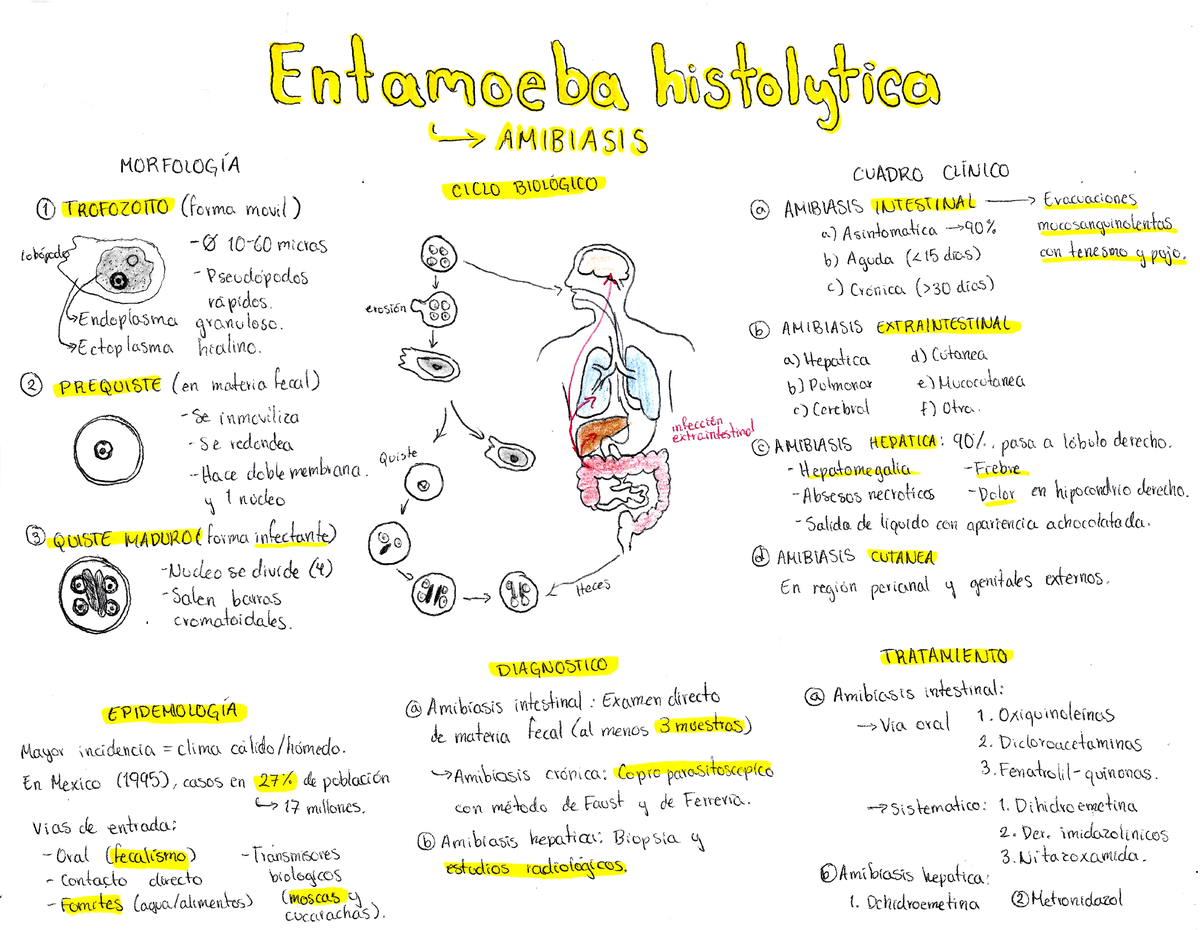 Entamoeba histolytica
↳ AMIBIASIS
MORFOLOGÍA
① TROFOZOITO (forma movil)
lobópodo
- Ø 10-60 micras
- Pseudópodos
rápidos.
→ Endoplasma granuloso.
→ Ectoplasma hialino.
② PREQUISTE (en materia fecal)
- Se inmoviliza
- Se redondea
- Hace doble membrana.
y 1 núcleo
③ QUISTE MADURO (forma infectante)
- Nucleo se divide (4)
- Salen barras
cromatoidales.
CICLO BIOLÓGICO
erosión
Quiste
Heces
infección
extraintestinal
CUADRO CLÍNICO
ⓐ AMIBIASIS INTESTINAL → Evacuaciones
mucosanguinolentas
con tenesmo y pujo.
a) Asintomatica → 90%
b) Aguda (<15 días)
c) Crónica (>30 días)
ⓑ AMIBIASIS EXTRAINTESTINAL
a) Hepatica d) Cutanea
b) Pulmonar e) Mucocutanea
c) Cerebral f) Otra.
ⓒ AMIBIASIS HEPATICA: 90%. pasa a lóbulo derecho.
- Hepatomegalia - Fiebre
- Absesos necroticos - Dolor en hipocondrio derecho.
- Salida de líquido con apariencia achocolatada.
ⓓ AMIBIASIS CUTANEA
En región perianal y genitales externos.
EPIDEMIOLOGÍA
Mayor incidencia = clima cálido/húmedo.
En Mexico (1995), casos en 27% de población
↳ 17 millones.
Vias de entrada:
- Oral (fecalismo)
- Contacto directo
- Fomites (agua/alimentos)
- Transmisores
biologicos
(moscas y
cucarachas).
DIAGNOSTICO
ⓐ Amibiasis intestinal: Examen directo
de materia fecal (al menos 3 muestras)
↳ Amibiasis crónica: Copro parasitoscopico
con método de Faust y de Ferreria.
ⓑ Amibiasis hepatica: Biopsia y
estudios radiológicos.
TRATAMIENTO
ⓐ Amibiasis intestinal:
→ Via oral 1. Oxiquinoleínas
2. Dicloroacetaminas
3. Fenatrolil-quinonas.
→ Sistematico: 1. Dihidroemetina
2. Der. imidazolínicos
3. Nitazoxamida.
ⓑ Amibiasis hepatica:
1. Dehidroemetina ② Metronidazol